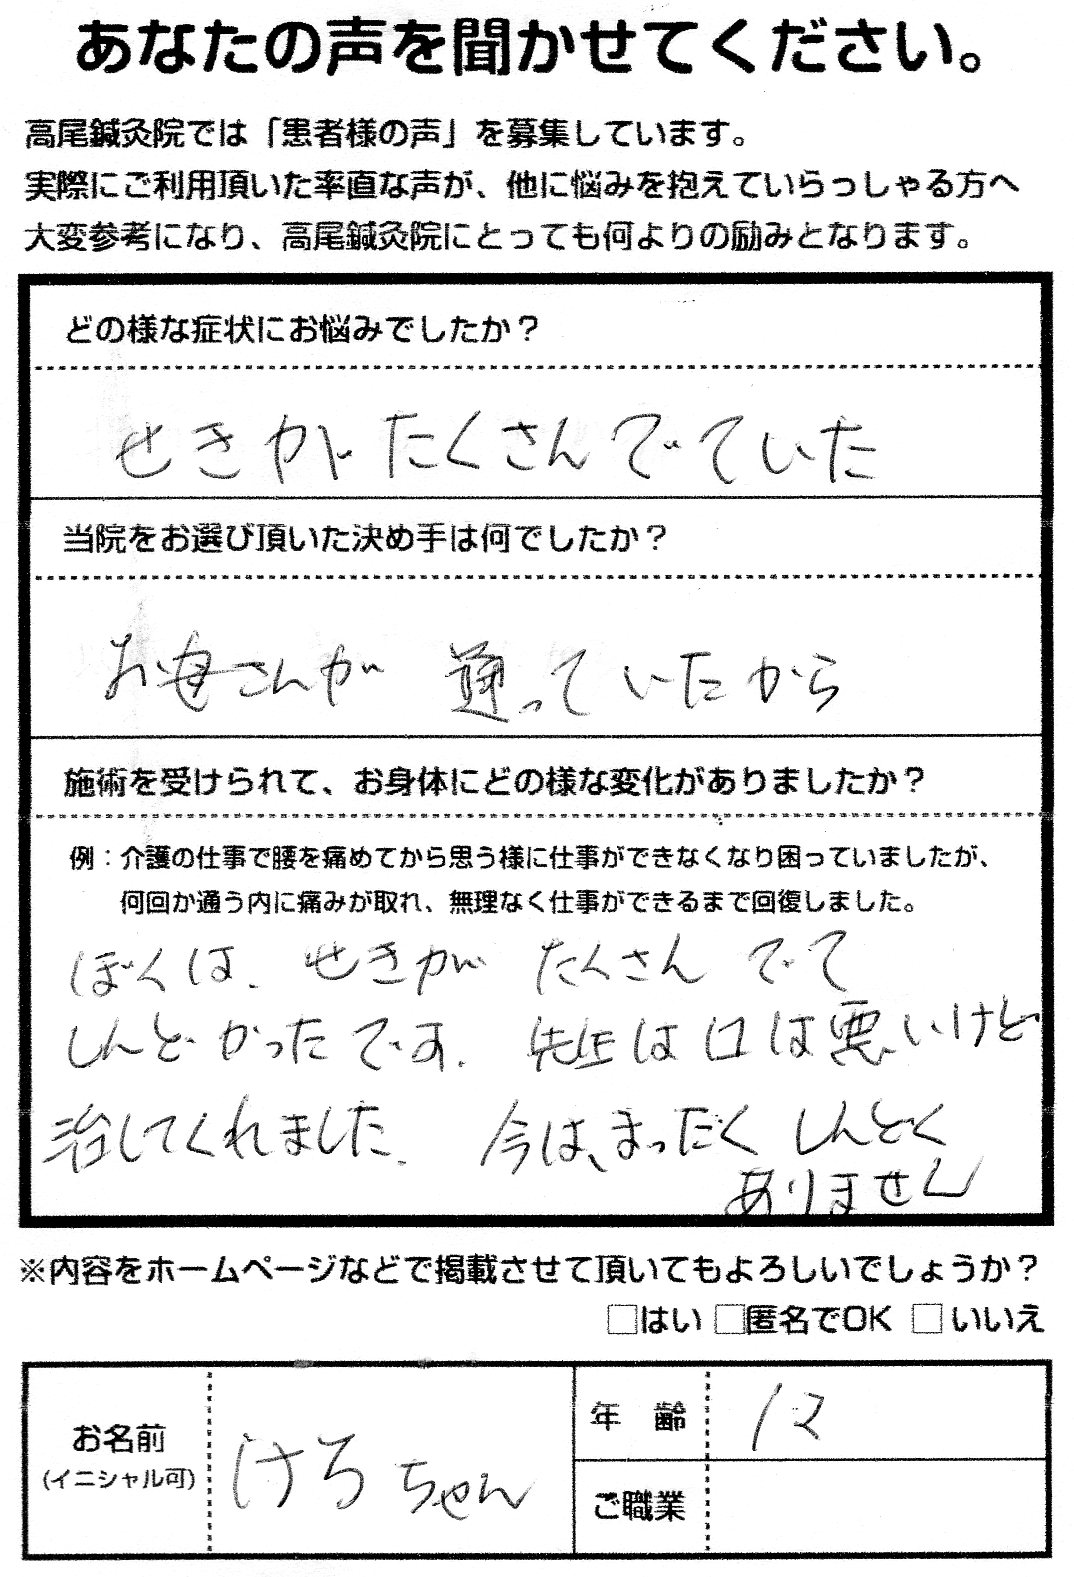 あなたの声を聞かせてください。
高尾鍼灸院では「患者様の声」を募集しています。
実際にご利用頂いた率直な声が、他に悩みを抱えていらっしゃる方へ
大変参考になり、高尾鍼灸院にとっても何よりの励みとなります。
どの様な症状にお悩みでしたか？
せきがたくさんでていた
当院をお選び頂いた決め手は何でしたか？
お母さんが通っていたから
施術を受けられて、お身体にどの様な変化がありましたか？
例：介護の仕事で腰を痛めてから思う様に仕事ができなくなり困っていましたが、
何回か通う内に痛みが取れ、無理なく仕事ができるまで回復しました。
ぼくは、せきがたくさんでて
しんどかったです。先生は口は悪いけど
治してくれました。今は、まったくしんどく
ありません
※内容をホームページなどで掲載させて頂いてもよろしいでしょうか？
□はい □匿名でOK □いいえ
お名前
(イニシャル可)
けろちゃん
年 齢
12
ご職業